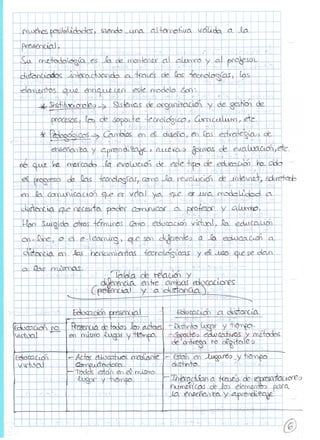 muchas posibilidades, siendo una alternativa válida a la
presencial.
Su metodología es la de mantener al alumno y al profesor
distanciados interactuando a través de las tecnologías, los
elementos que enriquecen este modelo son:
* Institucionales -> Sistemas de organización y de gestión de
procesos, los de soporte tecnológico, curriculum, etc
* Pedagógicos -> Cambios en el diseño, en las estrategias de
enseñanza y aprendizaje, nuevas formas de evaluación, etc
que ha marcado la evolución de este tipo de educación ha sido
el progreso de las tecnologías, como la revolución de internet, sobretodo
en la comunicación que es vital ya que es una modalidad a
distancia que necesita poder comunicar a profesor y alumno.
Han surgido otros términos como: educación virtual, la educación
on-line, o el e-learning, que son diferentes a la educación a
distancia en las herramientas tecnológicas y el uso que se dan
a las mismas.
Tabla de relación y
diferencia entre ambas educaciones
(presencial y a distancia)
Educación presencial
Educación a distancia
Educación no virtual
- Presencia de todos los actores en mismo lugar y tiempo.
- Distinto lugar y tiempo
- Soportes educativos y métodos de entrega no digitales
Educación virtual
- Actos educativos mediante computadora
- Todos están en el mismo lugar y tiempo
- Están en lugares y tiempo distinto.
- Interactúan a través de representaciones numéricas de los elementos para la enseñanza y aprendizaje
6